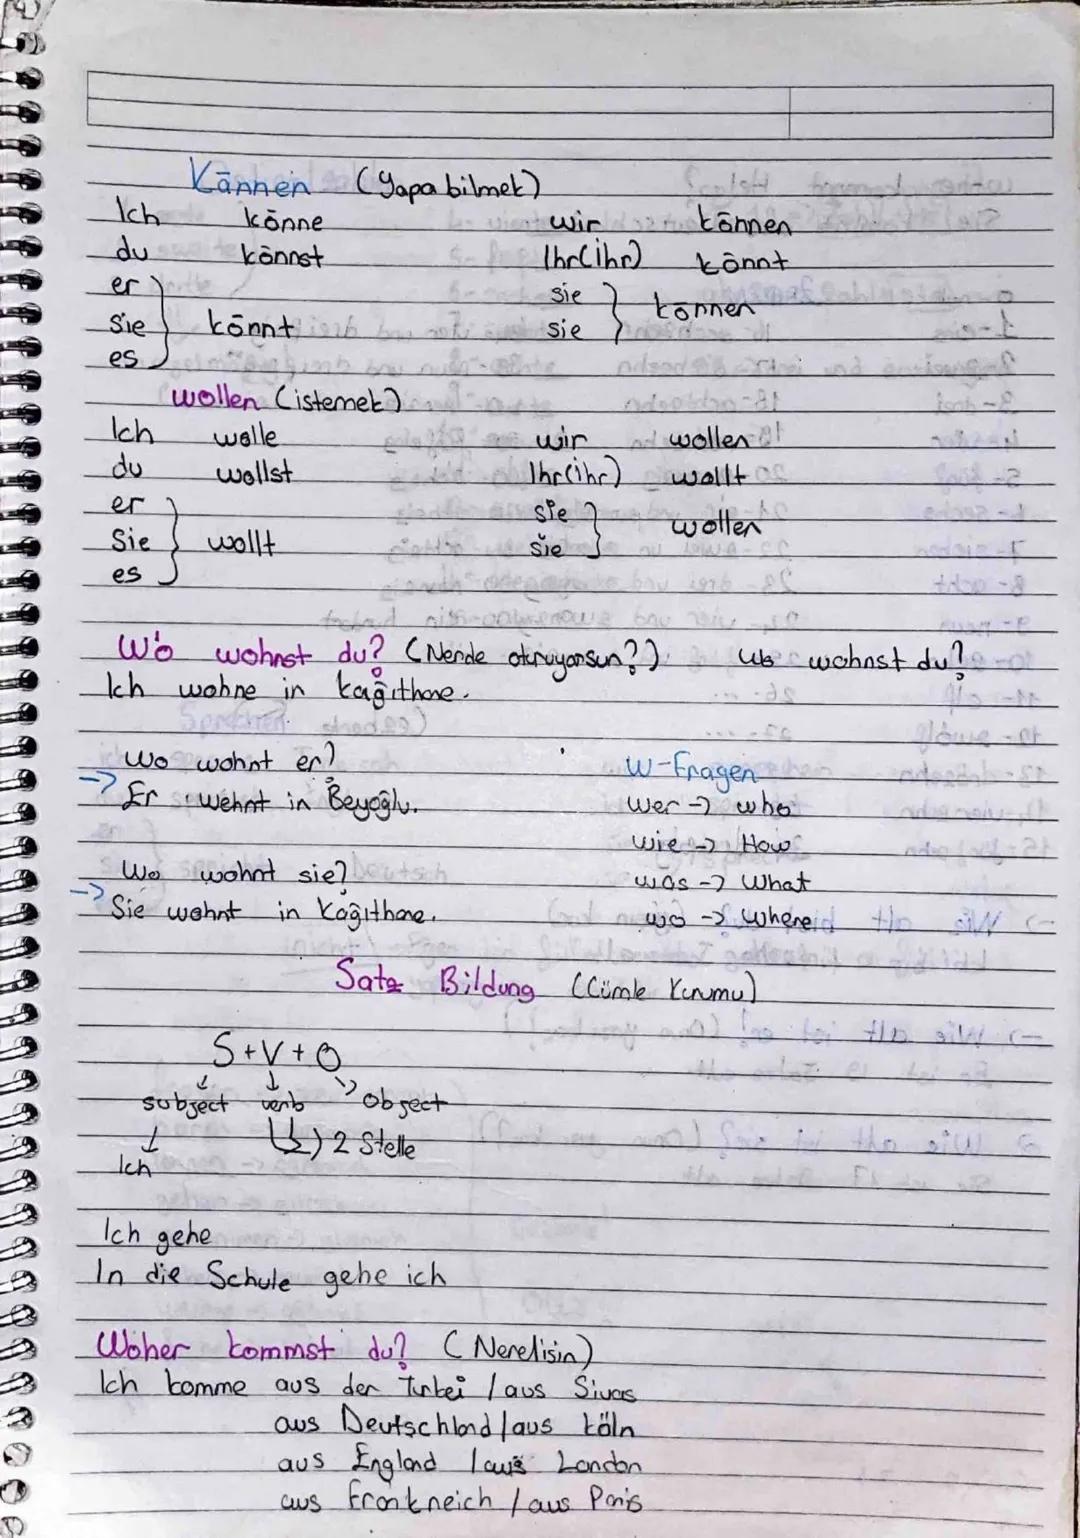 Kännen (Yapabilmek)
Ich könne wir können
du könnst Ihr(ihr) könnt
er sie
Sie könnt sie können
es
wollen (istemek)
Ich wolle wir wollen
du wollst Ihr(ihr) wollt
er sie
Sie wollt sie wollen
es
Wo wohnst du? (Nerde oturuyorsun?) Wo wohnst du?
Ich wohne in kağıthane.
Wo wohnt er? W-Fragen
-> Er wohnt in Beyoğlu. wer -> who
wie -> How
Wo wohnt sie? was -> What
-> Sie wohnt in kağıthane. wo -> where
Satz Bildung (Cümle Kurumu)
S+V+O
subject verb Object
Ich 2 Stelle
Ich gehe
In die Schule gehe ich
Woher kommst du? (Nerelisin)
Ich komme aus der Türkei / aus Sivas
aus Deutschland / aus köln
aus England / aus London
aus Frankreich / aus Paris